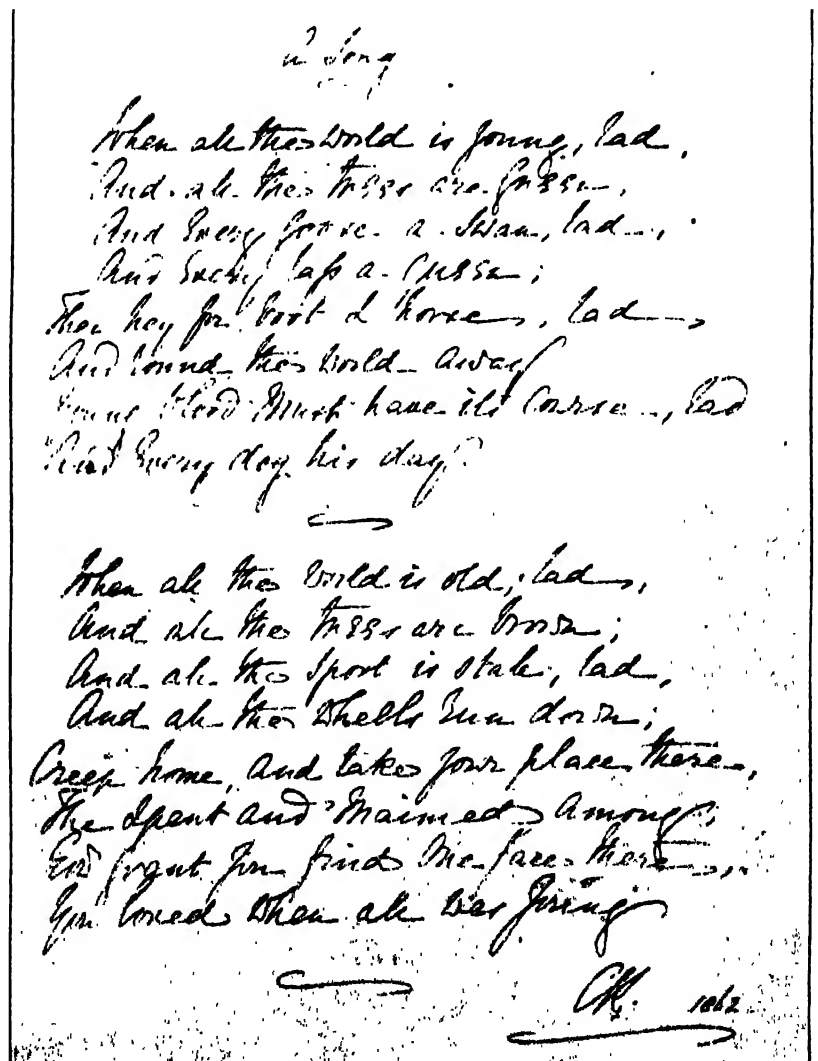 A Song
When all the World is young, lad,
And all the trees are green,
And Every goose a Swan, lad,
And Every lass a Queen;
Then hey for boot & horse, lad,
And round the World away
Young blood Must have its Course, lad
And Every dog his day.
When all the World is old, lad,
And all the trees are brown;
And all the Sport is stale, lad,
And all the Wheels run down;
Creep home, and take your place there,
The Spent and Maimed Among;
God grant you find One face there,
You loved when all was young
CK. 1862